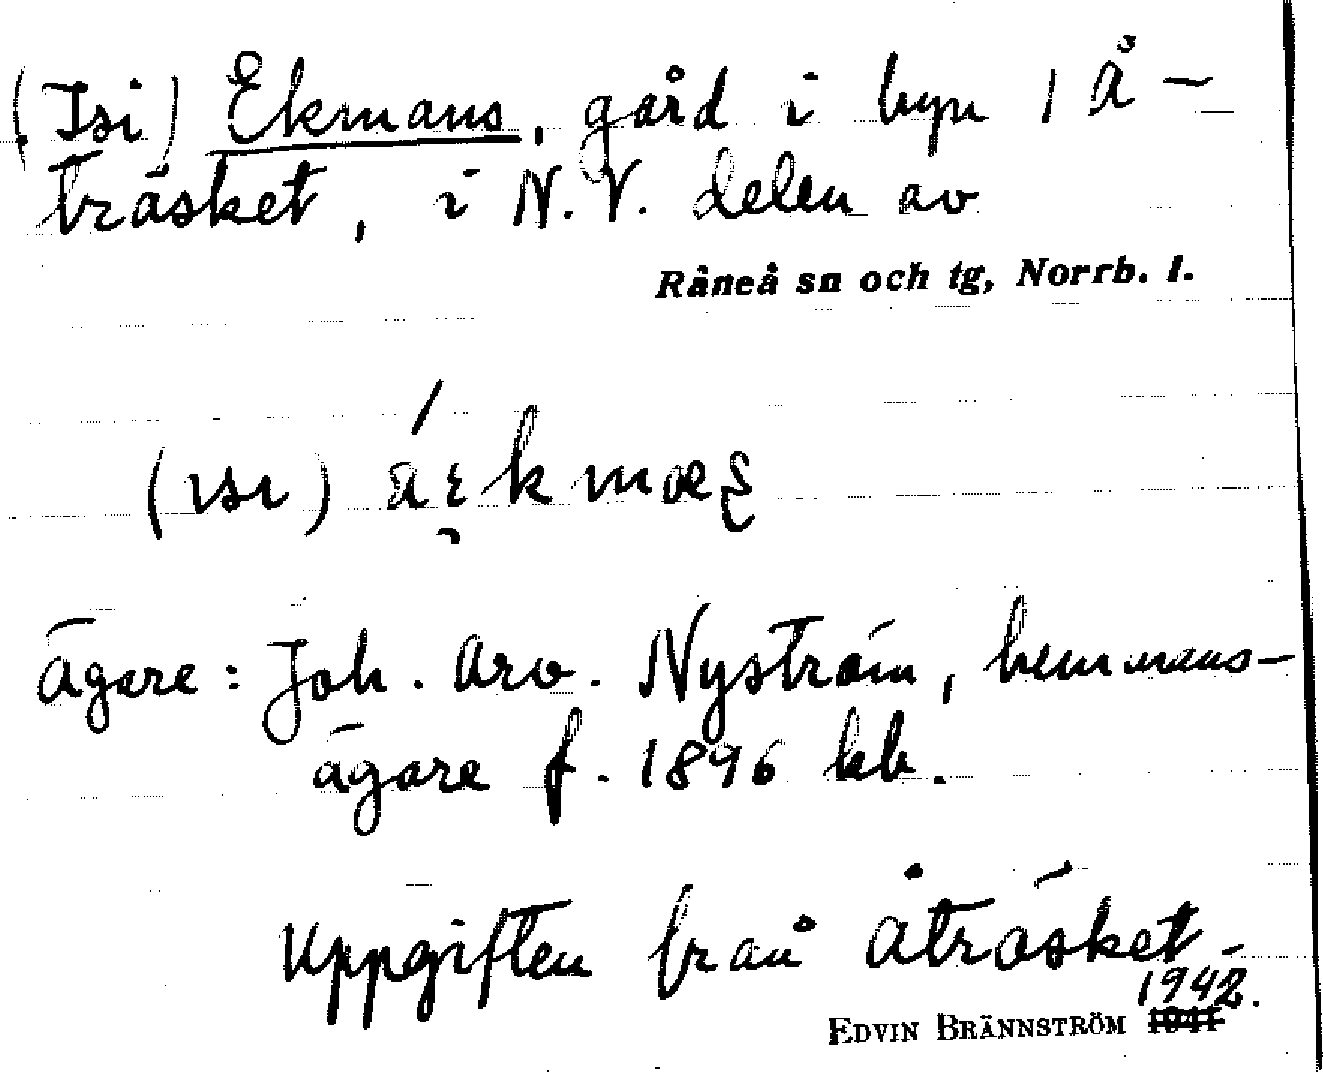 (Isi) Ekmans, gård i byn 1 Å-
träsket, i N.V. delen av
Råneå sn och tg, Norrb. l.
(ısı)
Ägare: Joh. Arv. Nyström, hemmans-
ägare f. 1896 kb.
Uppgiften från Åträsket -
1942.
EDVIN BRÄNNSTRÖM 1941